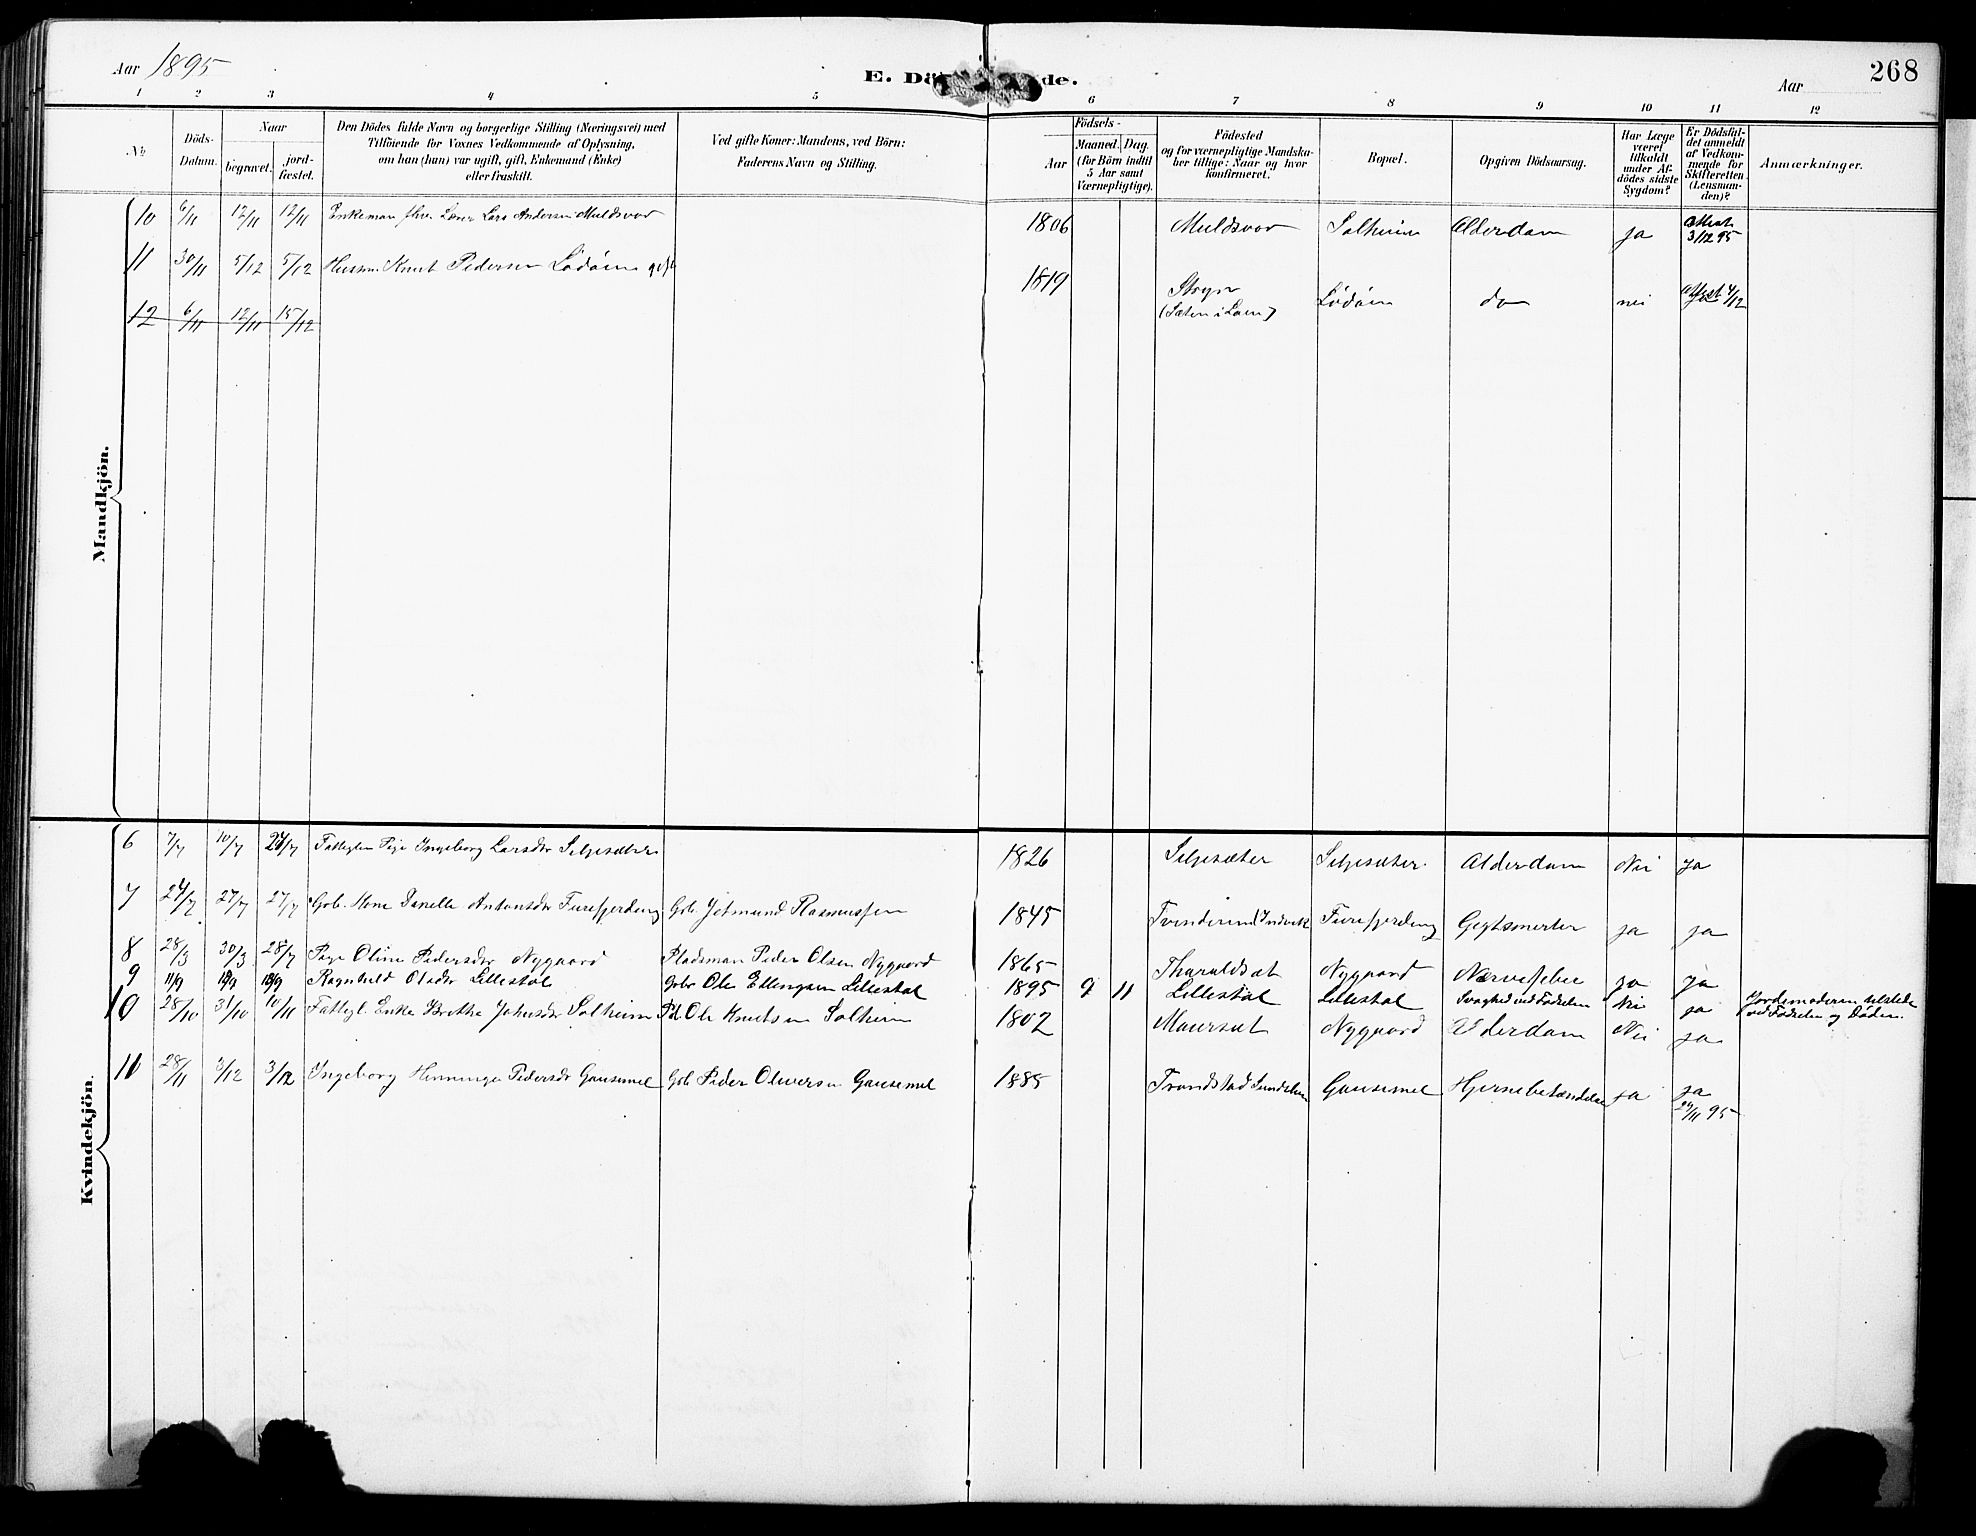 Aar 1895
E. Dö de.
Aar
268
1 2 3 4 5 6 7 8 9 10 11 12
No
Döds-Datum.
Naar
begravet.
jord-fæstet.
Den Dödes fulde Navn og borgerlige Stilling (Næringsvei) med
Tilföiende for Voxnes Vedkommende af Oplysning,
om han (hun) var ugift, gift, Enkemand (Enke)
eller fraskilt.
Ved gifte Koner: Mandens, ved Börn:
Faderens Navn og Stilling.
Födsels-
Aar
Maaned. Dag.
(for Börn indtil
5 Aar samt
Værnepligtige).
Födested
og for værnepligtige Mandska-
ber tillige: Naar og hvor
konfirmeret.
Bopæl.
Opgiven Dödsaarsag.
Har Læge
været
tilkaldt
under Af-
dödes sidste
Sygdom?
Er Dödsfal-
det anmeldt
af Vedkom-
mende for
Skifteretten
(Lensman-
den)?
Anmærkninger.
Mandkjön.
10 6/11 12/11 12/11 Enkeman Lars Andersen Muldsvor 1806 Muldsvor Solheim Alderdom ja Attest 3/12 95
11 30/11 5/12 5/12 Husman Knut Pedersen Lödöen gift 1819 Stryn (Sæten i Loen) Lödöen do nei Attest 4/12
12 6/11 12/11 15/12
Kvindekjön.
6 7/7 10/7 24/7 Fattiglem Pige Ingeborg Larsdr Seljesæter 1826 Seljesæter Seljesæter Alderdom Nei Ja
7 24/7 27/7 27/7 Gbr. Kone Danelle Antonsdr Furefjerding Gbr. Jetmund Rasmussen 1845 Tvindereim (Indvik Furefjerding Gigtsmerter ja ja
8 28/3 30/3 28/7 Pige Oline Pedersdr Nygaard Pladsman Peder Olsen Nygaard 1865 Tharaldsæt Nygaard Nervefeber ja ja
9 11/9 18/9 18/9 Ragnhild Olsdr Lillestøl Gbr Ole Ellingsen Lillestøl 1895 9 11 Lillestøl Lillestøl Svaghed ved Fødselen Nei ja Jordemoderen tilstede ved Fødselen og Døden.
10 28/10 31/10 10/11 Fattigl. Enke Brithe Johnsdr Solheim Pl. Ole Knutsen Solheim 1802 Maursæt Nygaard Alderdom Nei ja
11 28/11 3/12 3/12 Ingeborg Henninge Pedersdr Gausemel Gbr Peder Oliversen Gausemel 1885 Trandstad Sundelven Gausemel Hjernebetændelse ja ja 29/11 95